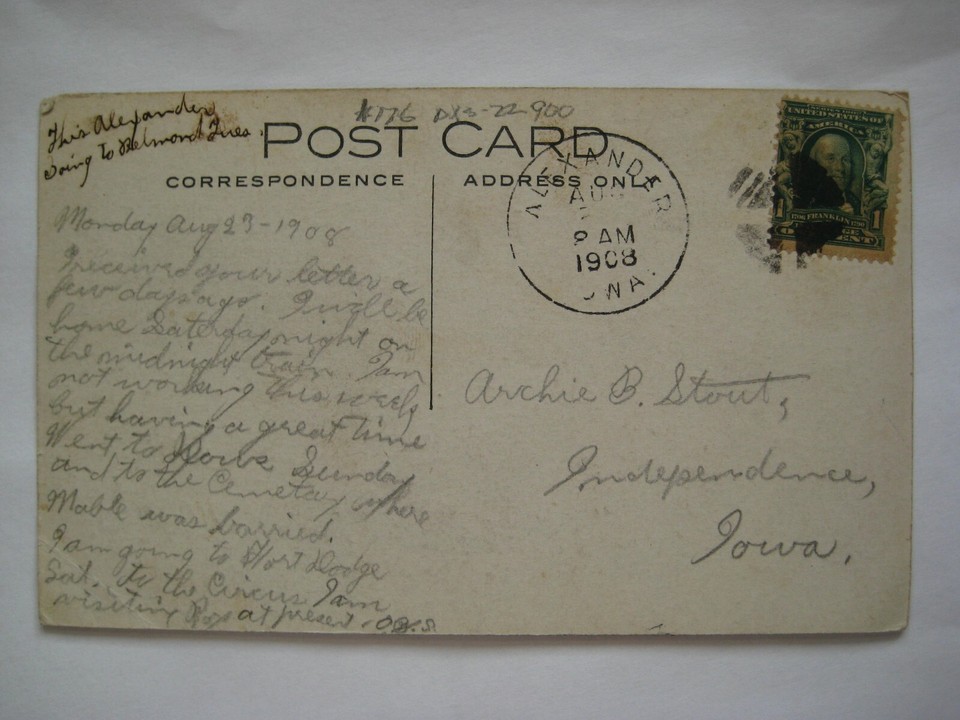 This Alexander
Going to Belmond Tues.
#176 DXS-22-900
POST CARD
CORRESPONDENCE
ADDRESS ONLY
ALEXANDER
AUG
8 AM
1908
IOWA.
UNITED STATES OF
AMERICA
1706 FRANKLIN 1790
1 1
Monday Aug 23-1908
I received your letter a
few days ago. I will be
home Saterday night on
the midnight train. I am
not working this week
but having a great time
Went to Sunday
and to the Cemetary where
Mable was barried.
I am going to Fort Dodge
Sat. to the Circus I am
visiting Roy at present -
Archie B. Stout,
Independence,
Iowa.